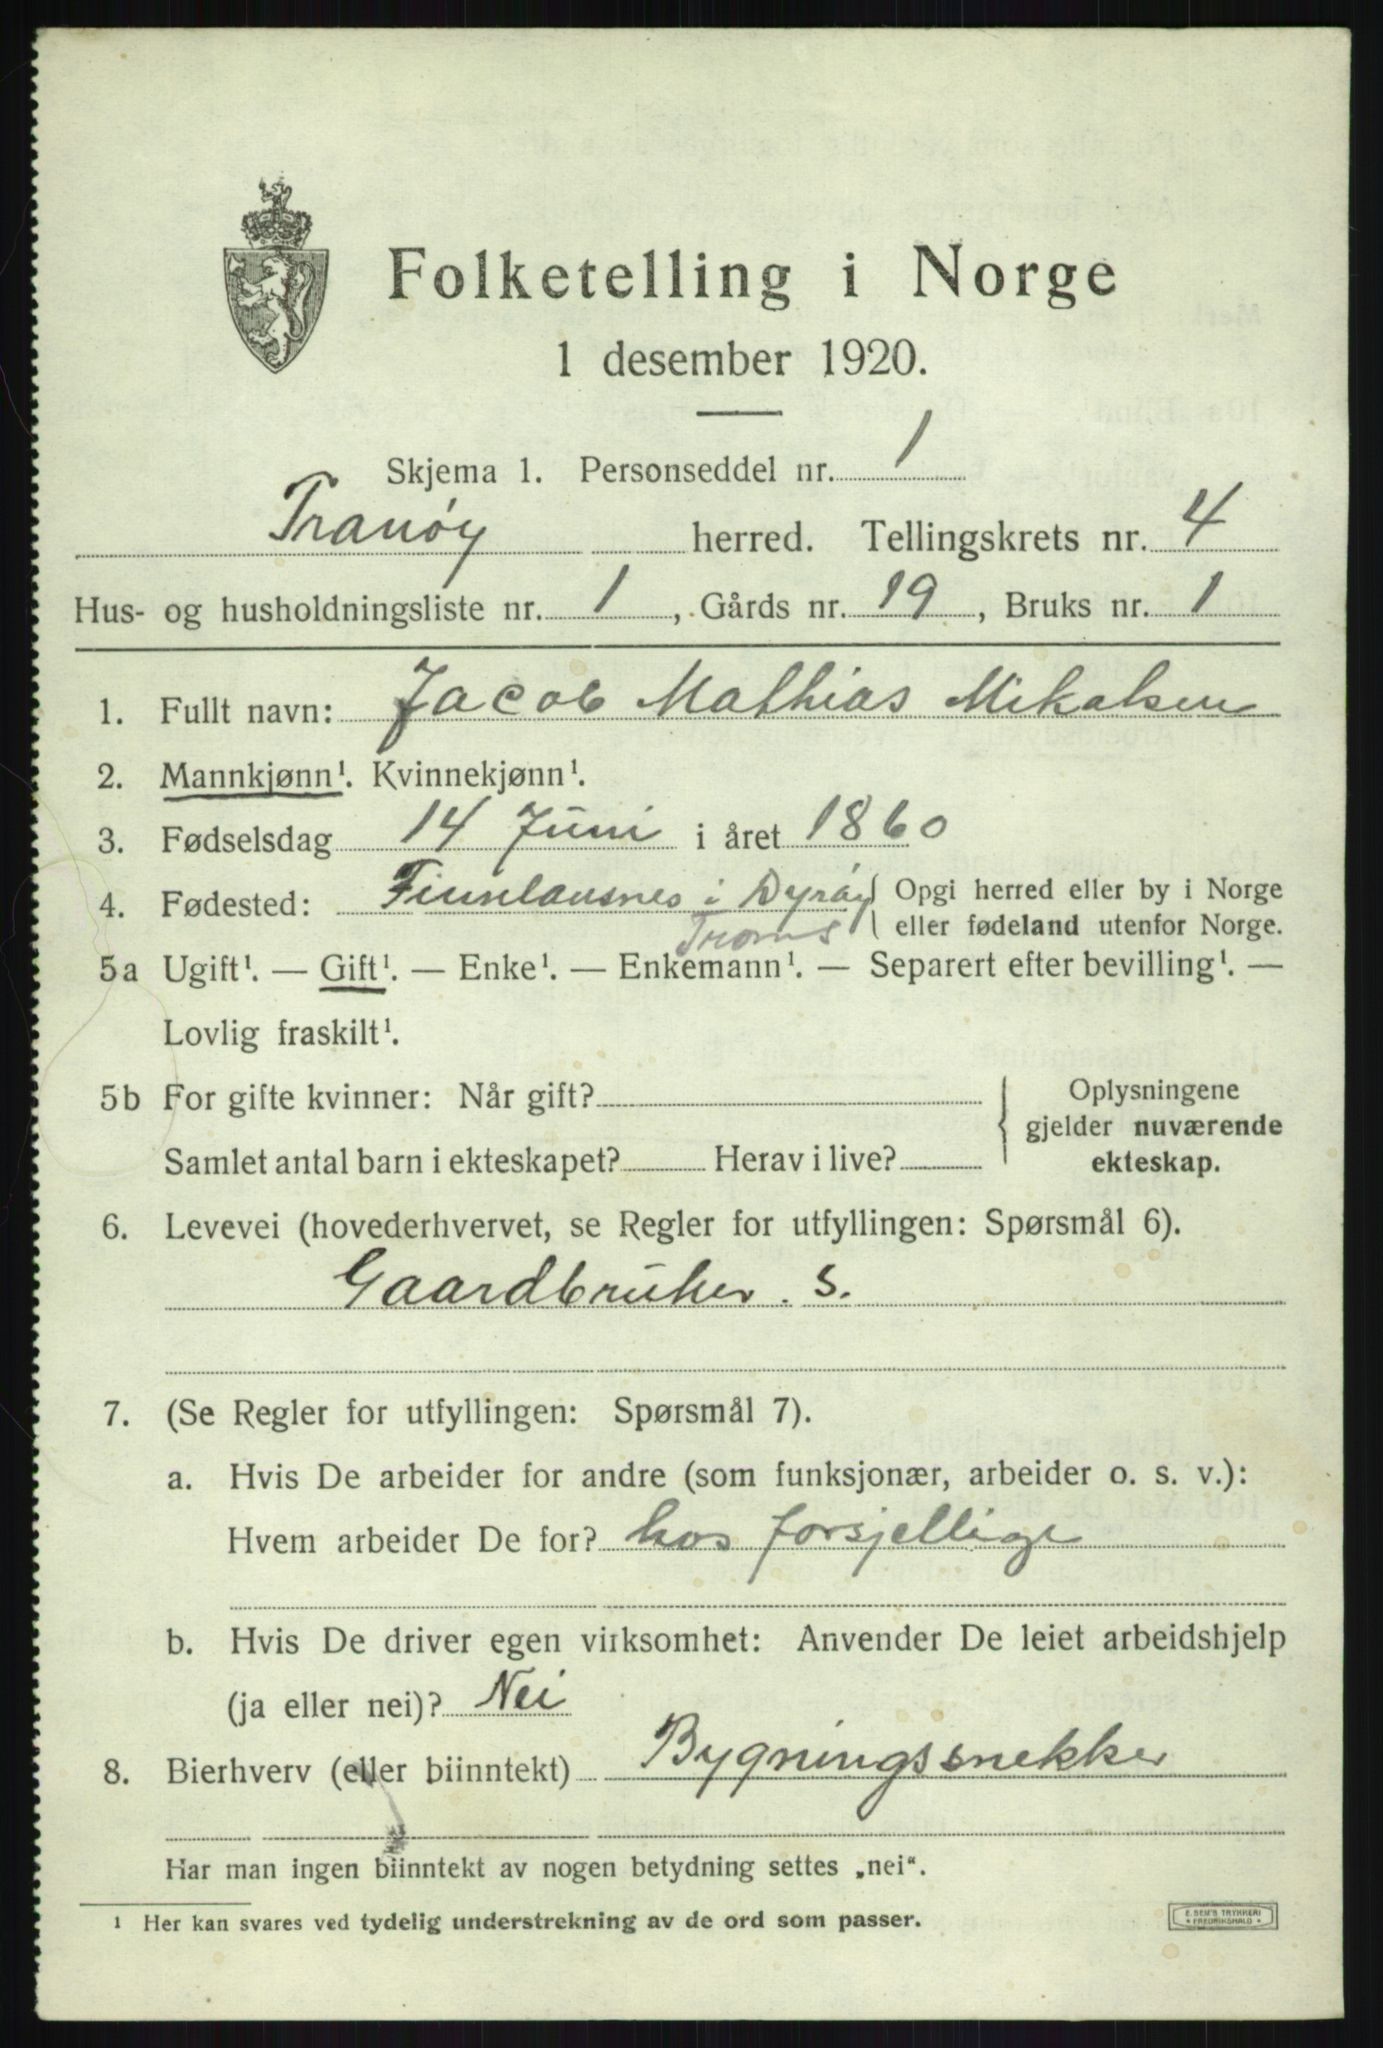 Folketelling i Norge
1 desember 1920.
Skjema 1. Personseddel nr. 1
Tranøy herred. Tellingskrets nr. 4
Hus- og husholdningsliste nr. 1, Gårds nr. 19, Bruks nr. 1
1. Fullt navn: Jacob Mathias Mikalsen
2. Mannkjønn¹. Kvinnekjønn¹.
3. Fødselsdag 14 Juni i året 1860
4. Fødested: Finnlansnes i Dyrøy { Opgi herred eller by i Norge
Troms eller fødeland utenfor Norge.
5a Ugift¹. — Gift¹. — Enke¹. — Enkemann¹. — Separert efter bevilling¹. —
Lovlig fraskilt¹.
5b For gifte kvinner: Når gift? Oplysningene
gjelder nuværende
Samlet antal barn i ekteskapet? Herav i live? ekteskap.
6. Levevei (hovederhvervet, se Regler for utfyllingen: Spørsmål 6).
Gaardbruker. S.
7. (Se Regler for utfyllingen: Spørsmål 7).
a. Hvis De arbeider for andre (som funksjonær, arbeider o. s. v.):
Hvem arbeider De for? hos forsjellige
b. Hvis De driver egen virksomhet: Anvender De leiet arbeidshjelp
(ja eller nei)? Nei
8. Bierhverv (eller biinntekt) Bygningssnekker
Har man ingen biinntekt av nogen betydning settes „nei“.
¹ Her kan svares ved tydelig understrekning av de ord som passer.
E. SEM'S TRYKKERI
* FREDRIKSHALD *